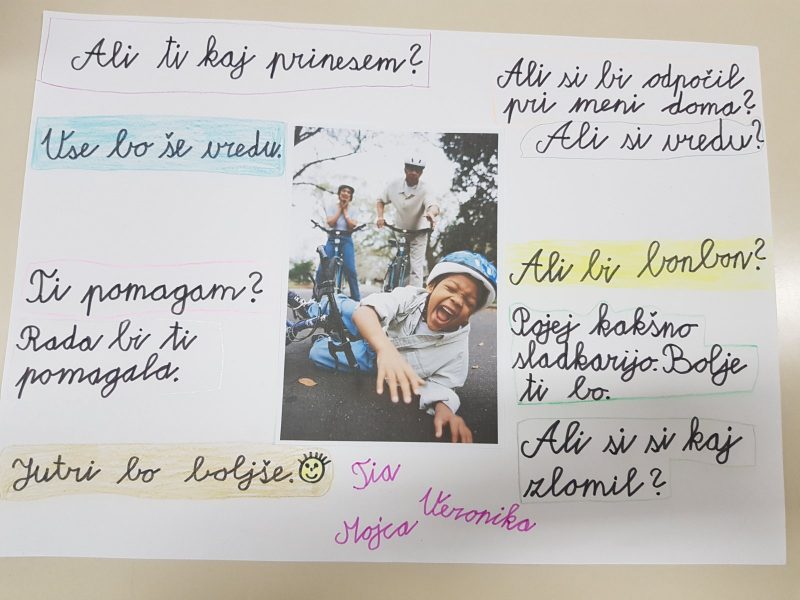 Ali ti kaj prinesem?
Vse bo še vredu.
Ti pomagam?
Rada bi ti
pomagala.
Jutri bo boljše.
Ali si bi odpočil
pri meni doma?
Ali si vredu?
Ali bi bonbon?
Pojej kakšno
sladkarijo. Bolje
ti bo.
Ali si si kaj
zlomil?
Tia
Veronika
Mojca